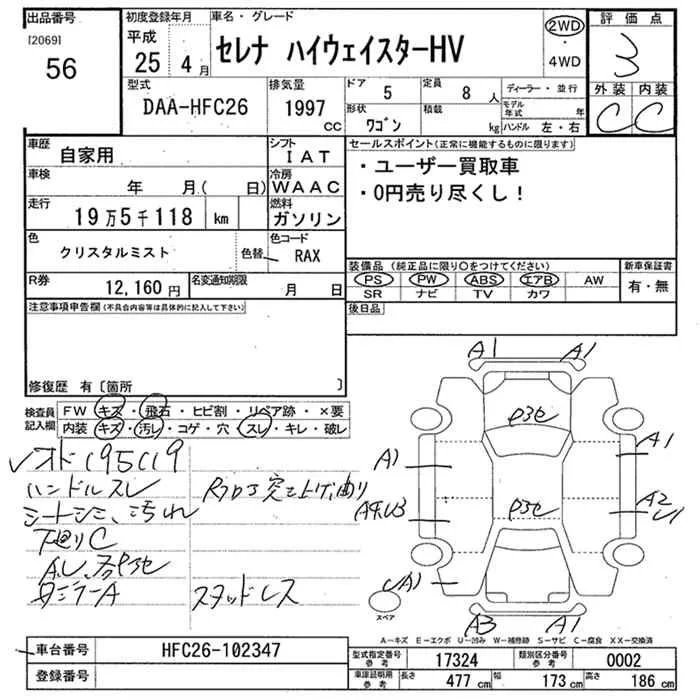 出品番号
[2069]
56
初度登録年月
平成
25 4 月
車名・グレード
セレナ ハイウェイスターHV
2WD
4WD
評価点
3
外装 内装
C C
型式
DAA-HFC26
排気量
1997
CC
ドア
5
定員
8 人
形状
ワゴン
積載
kg
ディーラー・並行
モデル年式 年
ハンドル 左・右
車歴
自家用
シフト
IAT
車検
年 月( 日)
冷房
WAAC
走行
19万5千118 km
燃料
ガソリン
色
クリスタルミスト
色替
色コード
RAX
R券
12,160 円
名変通知期限
月 日
セールスポイント(正常に機能するものに限ります)
・ユーザー買取車
・0円売り尽くし！
装備品 (純正品に限り○をつけてください)
PS PW ABS エアB AW
SR ナビ TV カワ
新車保証書
有・無
後日品
注意事項申告欄(不具合内容等は具体的に記入して下さい)
修復歴 有〔箇所 〕
検査員記入欄
FW キズ・飛石・ヒビ割・リペア跡・×要
内装 キズ・汚レ・コゲ・穴・スレ・キレ・破レ
メオド195119
ハンドルスレ
シートシミ、汚れ
下廻りC
スタッドレス
A1 A1
A1
A1
A2
A1
A3 A1
スペア
A－キズ E－エクボ U－凹み W－補修跡 S－サビ C－腐食 XX－交換済
車台番号
HFC26-102347
登録番号
型式指定番号 参考
17324
類別区分番号 参考
0002
車庫証明用 参考
長さ 477 cm 幅 173 cm 高さ 186 cm